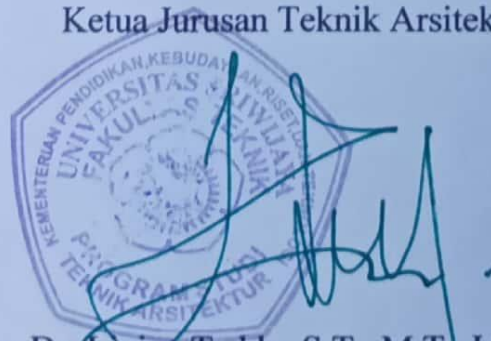 Ketua Jurusan Teknik Arsitek
KEMENTERIAN PENDIDIKAN, KEBUDAYAAN, RISET, DAN
UNIVERSITAS SRIWIJAYA
FAKULTAS TEKNIK
PROGRAM STUDI
TEKNIK ARSITEKTUR